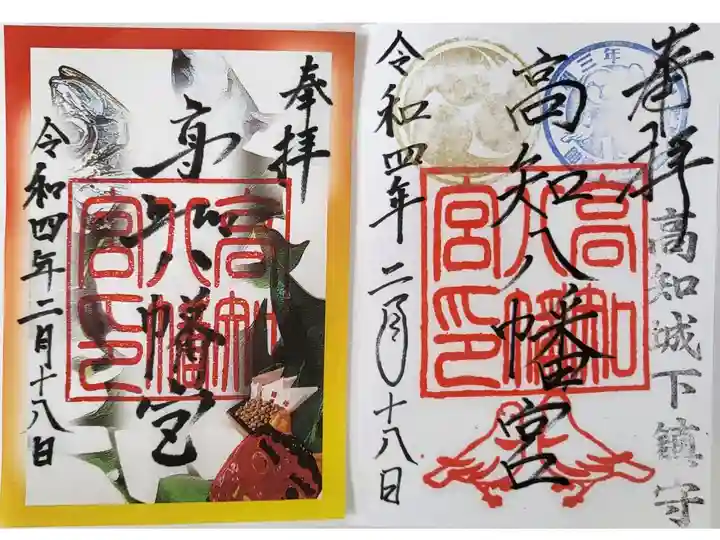 奉拝
高知八幡宮
高知八幡宮印
令和四年二月十八日
奉拝
高知城下鎮守
三年
高知八幡宮
高知八幡宮印
令和四年二月十八日